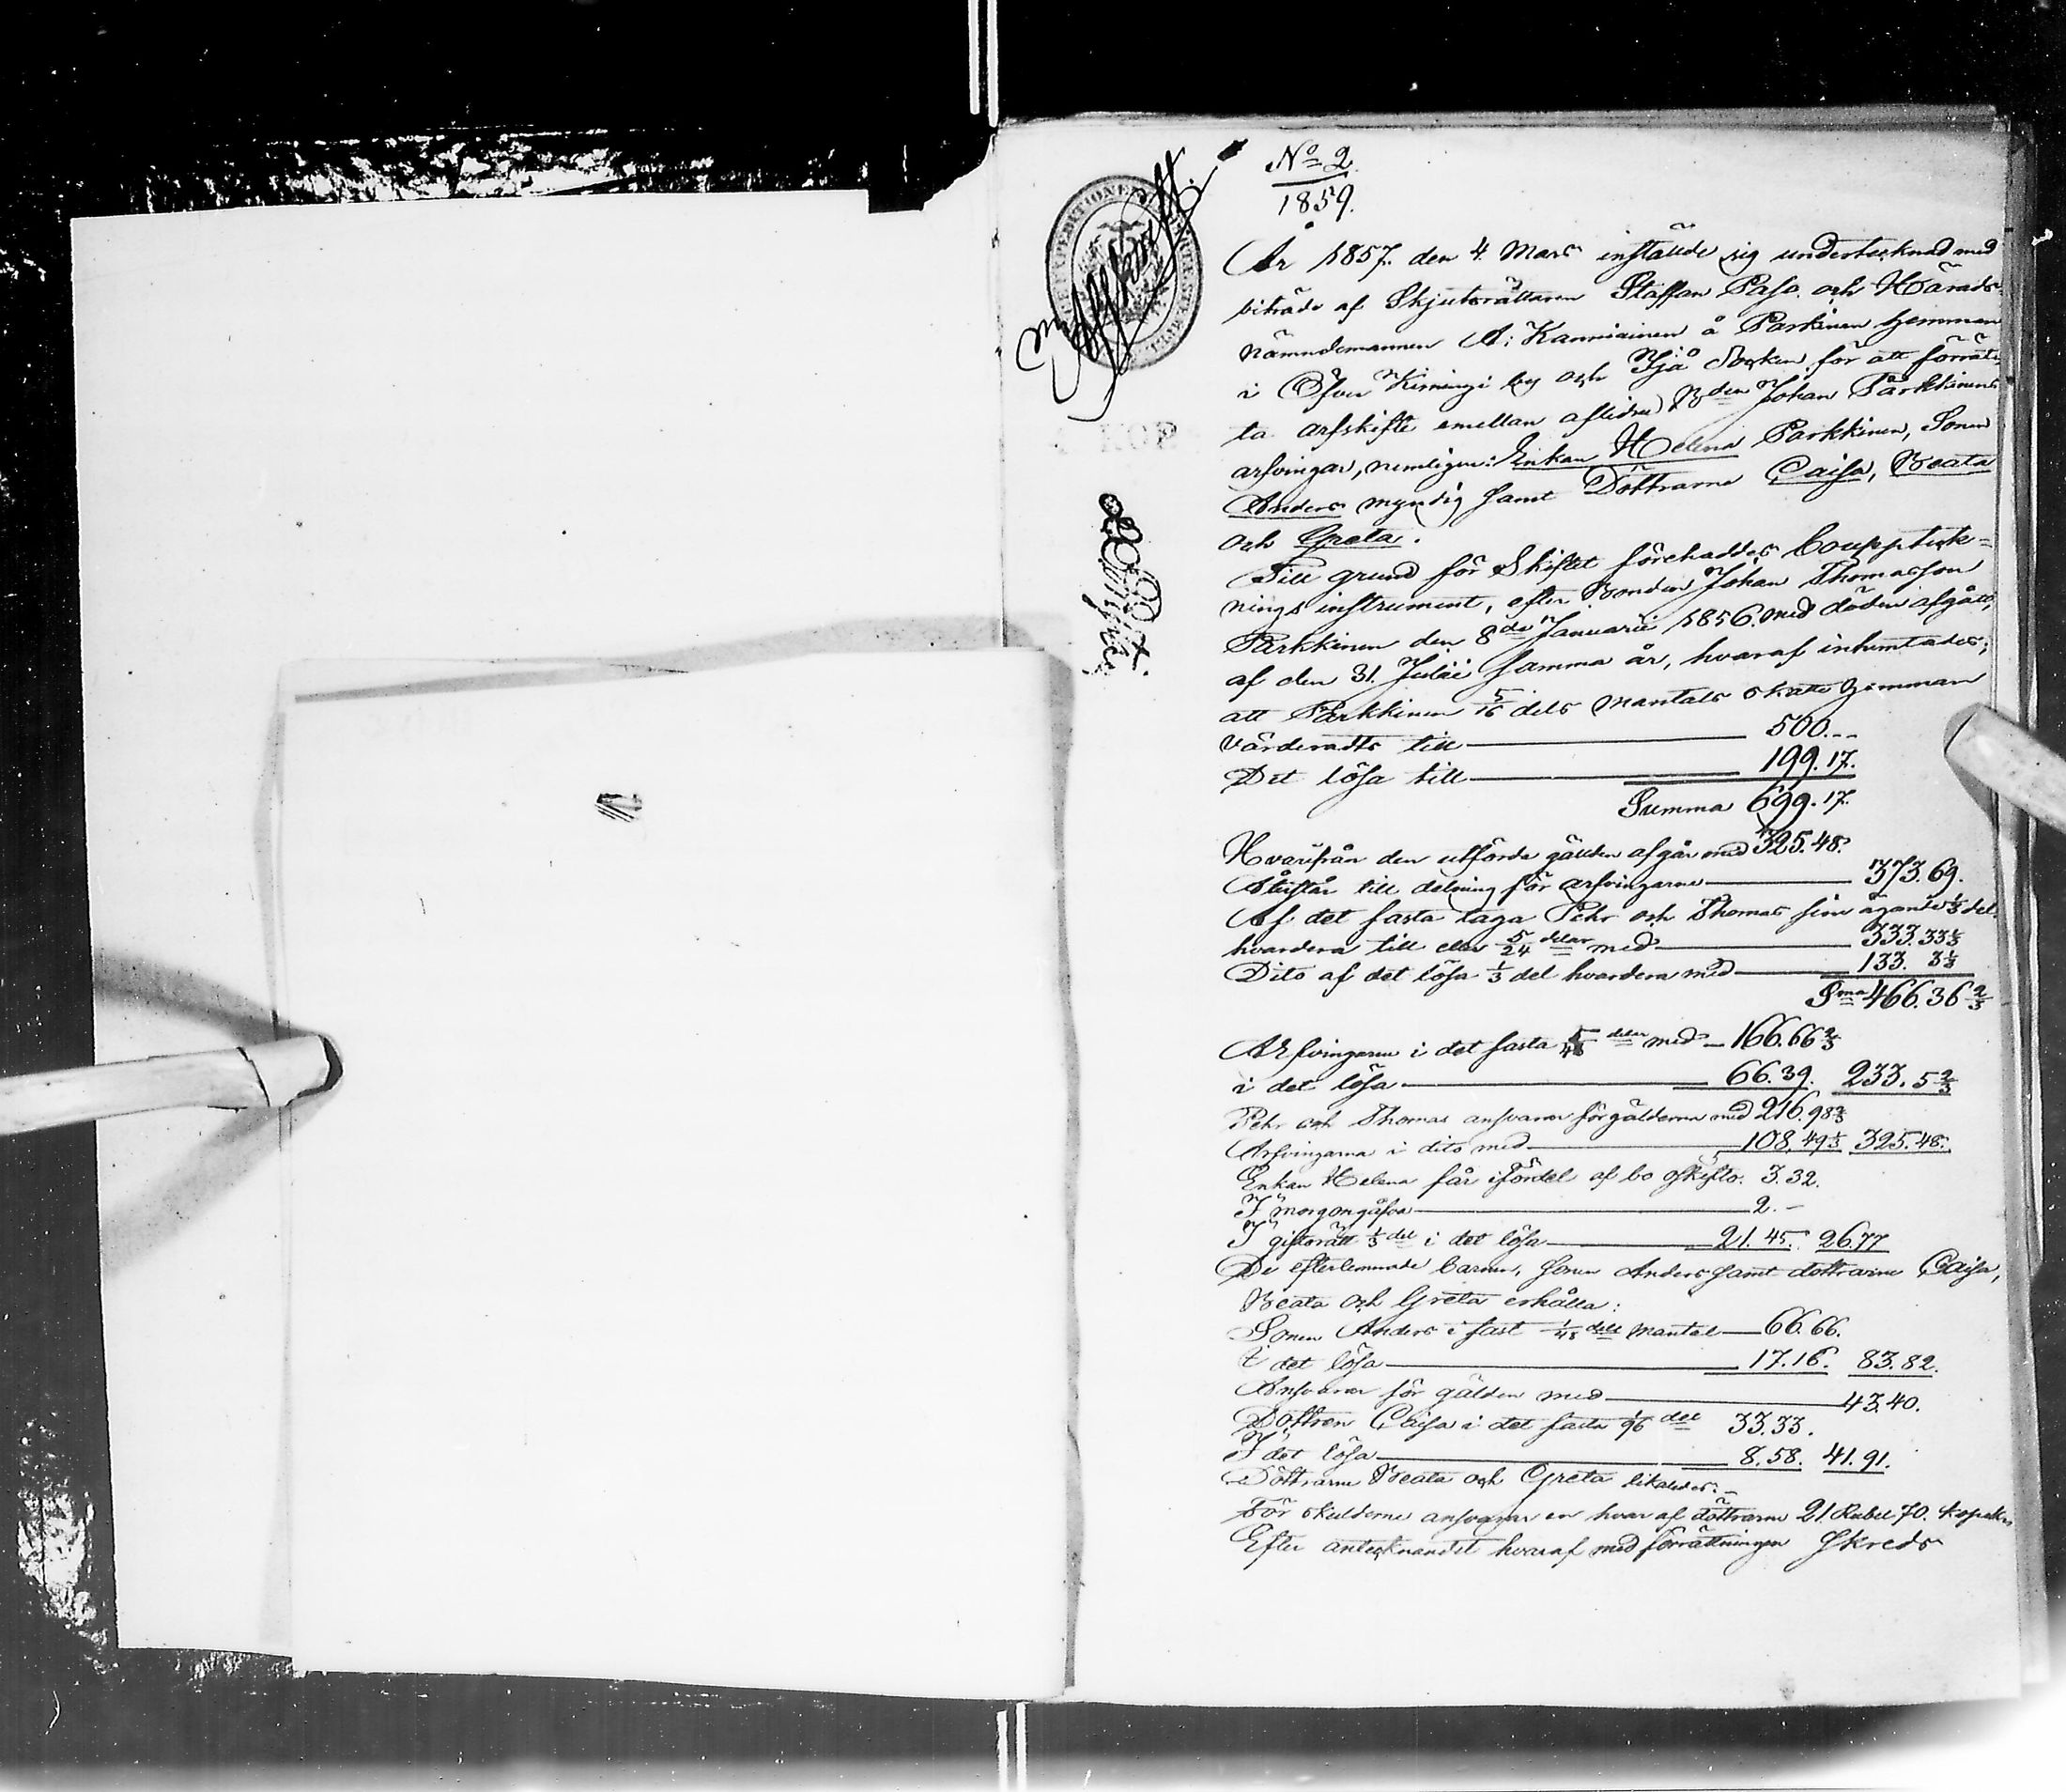 No 2
1859.
År 1857. den 4. Mars inställde sig undertecknad med
biträde af Skjutsrättaren Staffan Paso. och Härads-
nämndemannen A: Kanniainen å Parkinen hemman
i Öfver Kiminge by och Ijå Socken för att förrät-
ta arfskifte emellan aflidne Bden Johan Pärkkinens
arfvingar, nemligen: Enkan Helena Parkkinen, Sonen
Anders myndig samt Döttrarne Caisa, Beata
och Greta.
Till grund för Skiftet förehaddes Bouppteck=
nings instrument, efter Bonden Johan Thomasson
Pärkkinen den 8de Januarii 1856. med döden afgått,
af den 31. Julii samma år, hvaraf inhemtades;
att Pärkkinen 5/16 dels mantals skatte hemman
värderadts till 500.--
Det lösa till 199.17.
Summa 699.17.
Hvarifrån den utförde gälden afgår med 325.48.
Återstår till delning för arfvingarne 373.69.
Af det fasta taga Pehr och Thomas sine ägande 1/3 del
hvardera till eller 5/24 delar med 333.33 1/3
Dito af det lösa 1/3 del hvardera med 133. 3 1/3
Sma 466.36 2/3
Arfvingarne i det fasta 5/48 delar med 166.66 2/3
i det lösa 66.39. 233. 5 2/3
Pehr och Thomas ansvarar för gälderna med 216.98 2/3
Arfvingarna i dito med 108.49 1/3 325.48.
Enkan Helena får i fördel af bo oskifto. 3.32.
I morgongåfva 2.-
I giftorätt 1/3 del i det lösa 21.45. 26.77
De efterlemnade barnen, sonen Anders samt döttrarne Caisa,
Beata och Greta erhålla:
Sonen Anders i fast 1/48 dels mantal 66.66.
i det lösa 17.16. 83.82.
Ansvarar för gälden med 43.40.
Dottren Caisa i det fasta 1/96 del 33.33.
I det lösa 8.58. 41.91.
Döttrarne Beata och Greta likaledes.-
För skulderne ansvarar en hvar af döttrarne 21. Rubel 70. kopek
Efter antecknandet hvaraf med förrättningen skreds